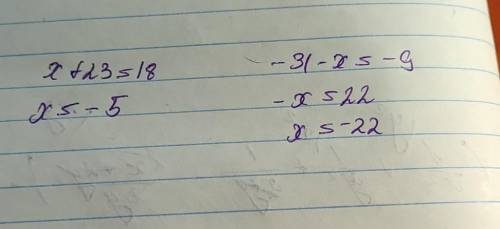 x+23=18
x=-5
-31-x=-9
-x=22
x=-22